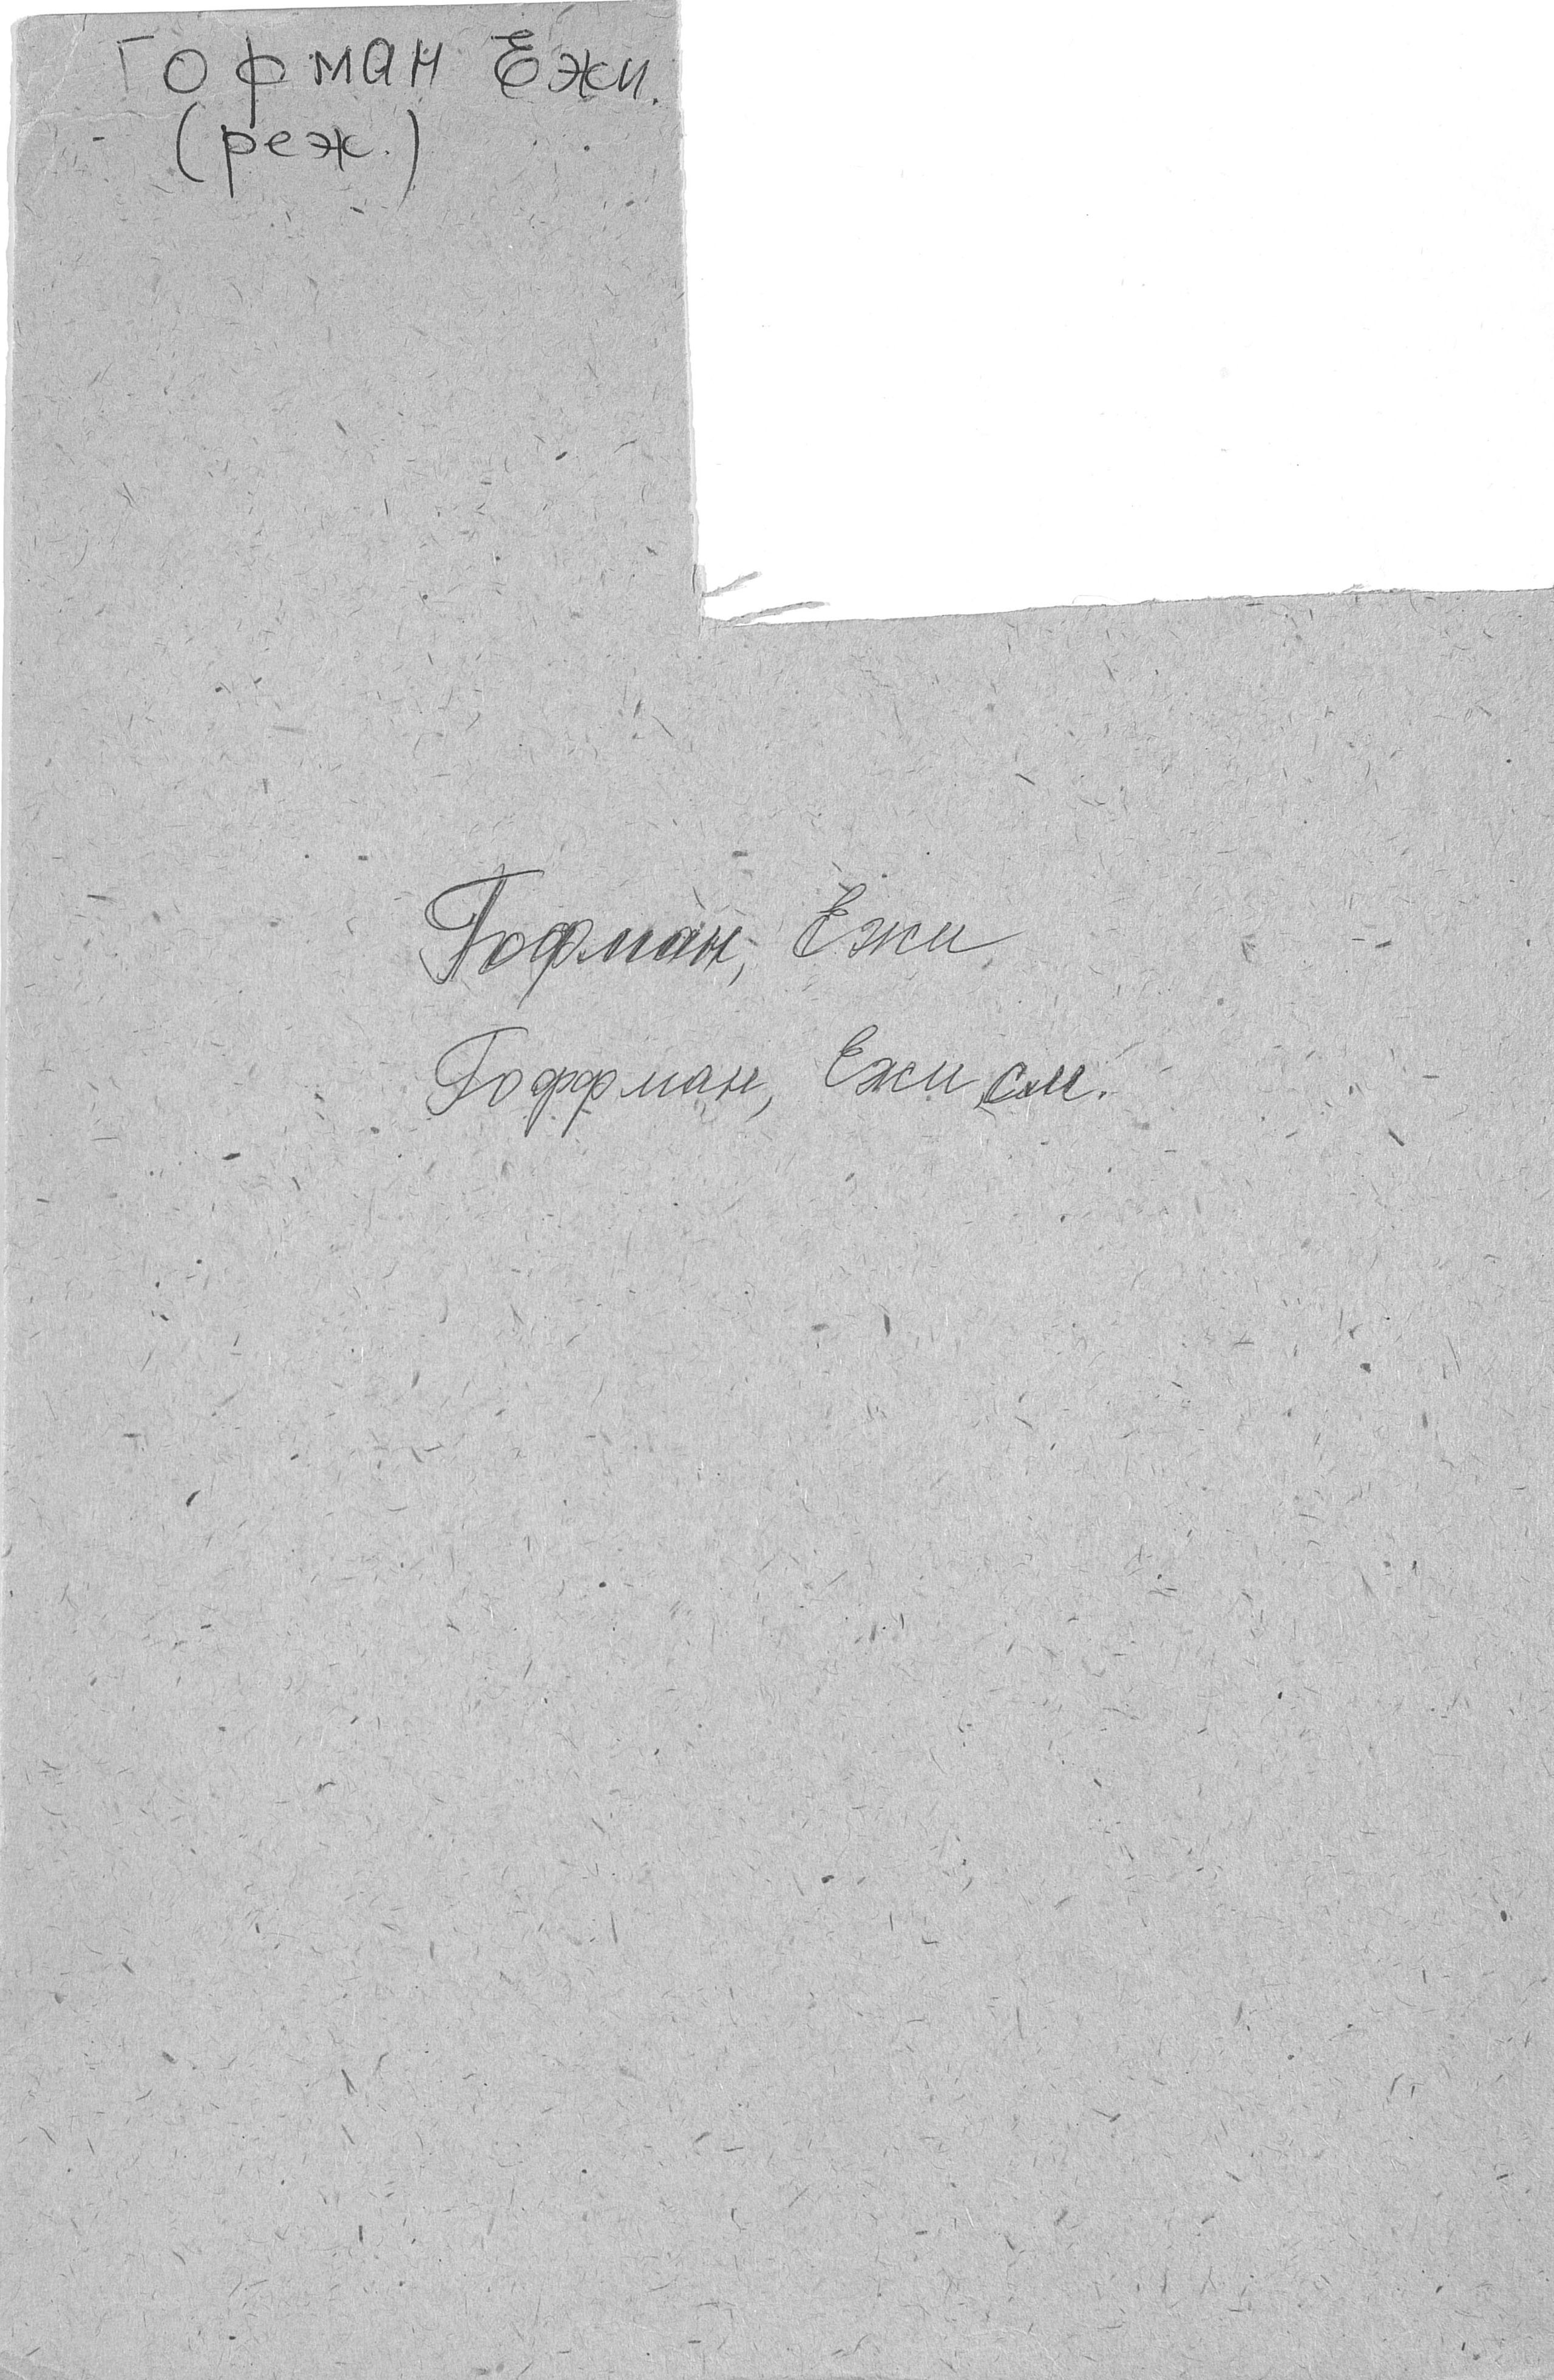 Гофман Ежи.
(реж.)
Гофман, Ежи
Гоффман, Ежи см.